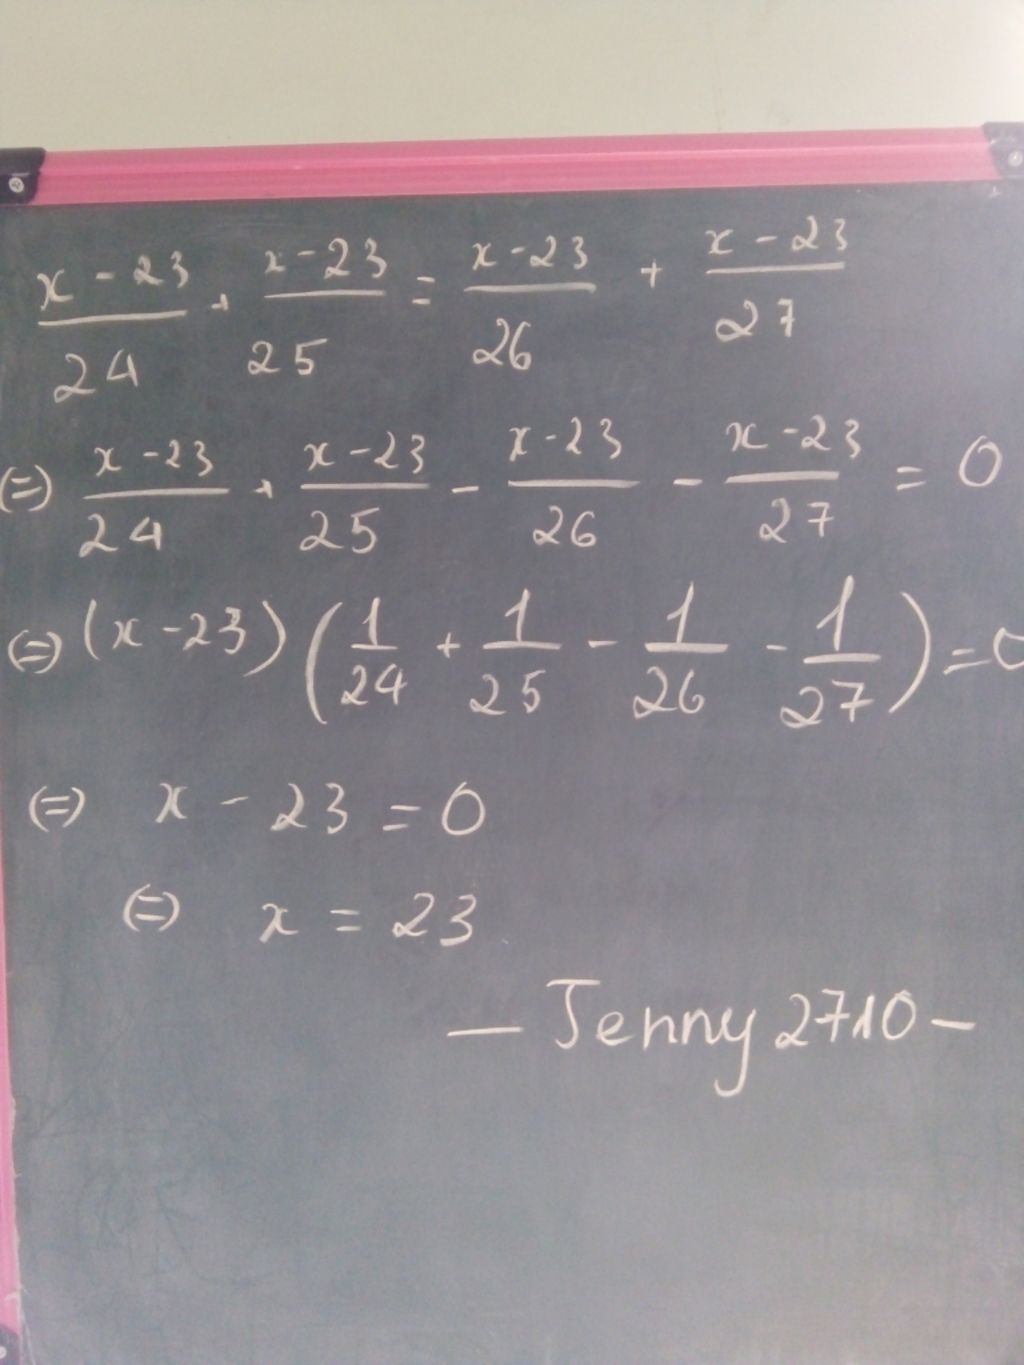 x - 23/24 + x - 23/25 = x - 23/26 + x - 23/27
(=) x - 23/24 + x - 23/25 - x - 23/26 - x - 23/27 = 0
(=) (x - 23) (1/24 + 1/25 - 1/26 - 1/27) = 0
(=) x - 23 = 0
(=) x = 23
— Jenny 2710 —